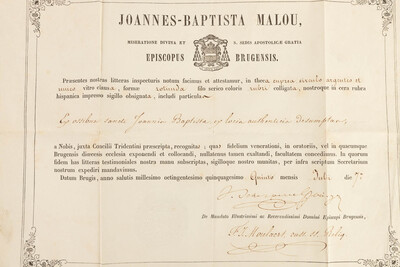 JOANNES-BAPTISTA MALOU,
MISERATIONE DIVINA ET S. SEDIS APOSTOLICÆ GRATIA
EPISCOPUS BRUGENSIS.
Præsentes nostras litteras inspecturis notum facimus et attestamur, in theca cuprea circulo argenteo et
unico vitro clausa, formæ rotunda filo serico coloris rubri colligata, nostroque in cera rubra
hispanica impresso sigillo obsignata, includi particulam
Ex ossibus sancti Joannis Baptistæ, ex locis authenticis desumptam,
a Nobis, juxta Concilii Tridentini præscripta, recognitas; quas fidelium venerationi, in oratoriis, vel in quacumque
Brugensis diœcesis ecclesia exponendi et collocandi, nullatenus tamen exaltandi, facultatem concedimus. In quorum
fidem has litteras testimoniales nostra manu subscriptas, sigilloque nostro munitas, per infra scriptum Secretarium
nostrum expediri mandavimus.
Datum Brugis, anno salutis millesimo octingentesimo quinquagesimo Quinto mensis die
De Mandato Illustrissimi ac Reverendissimi Domini Episcopi Brugensis,